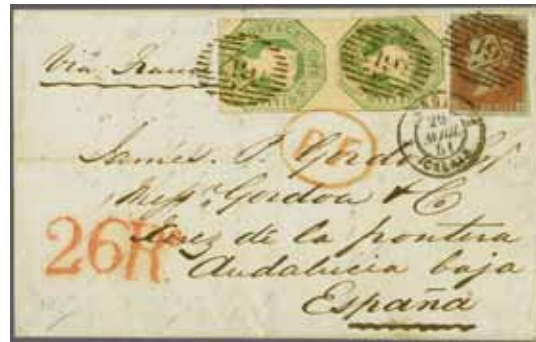 POSTAGE
Via
P.F.
James. P. Gordon Esq
Mess.rs Gordon & Co
Xerez de la frontera
26R
Andalucia baja
España